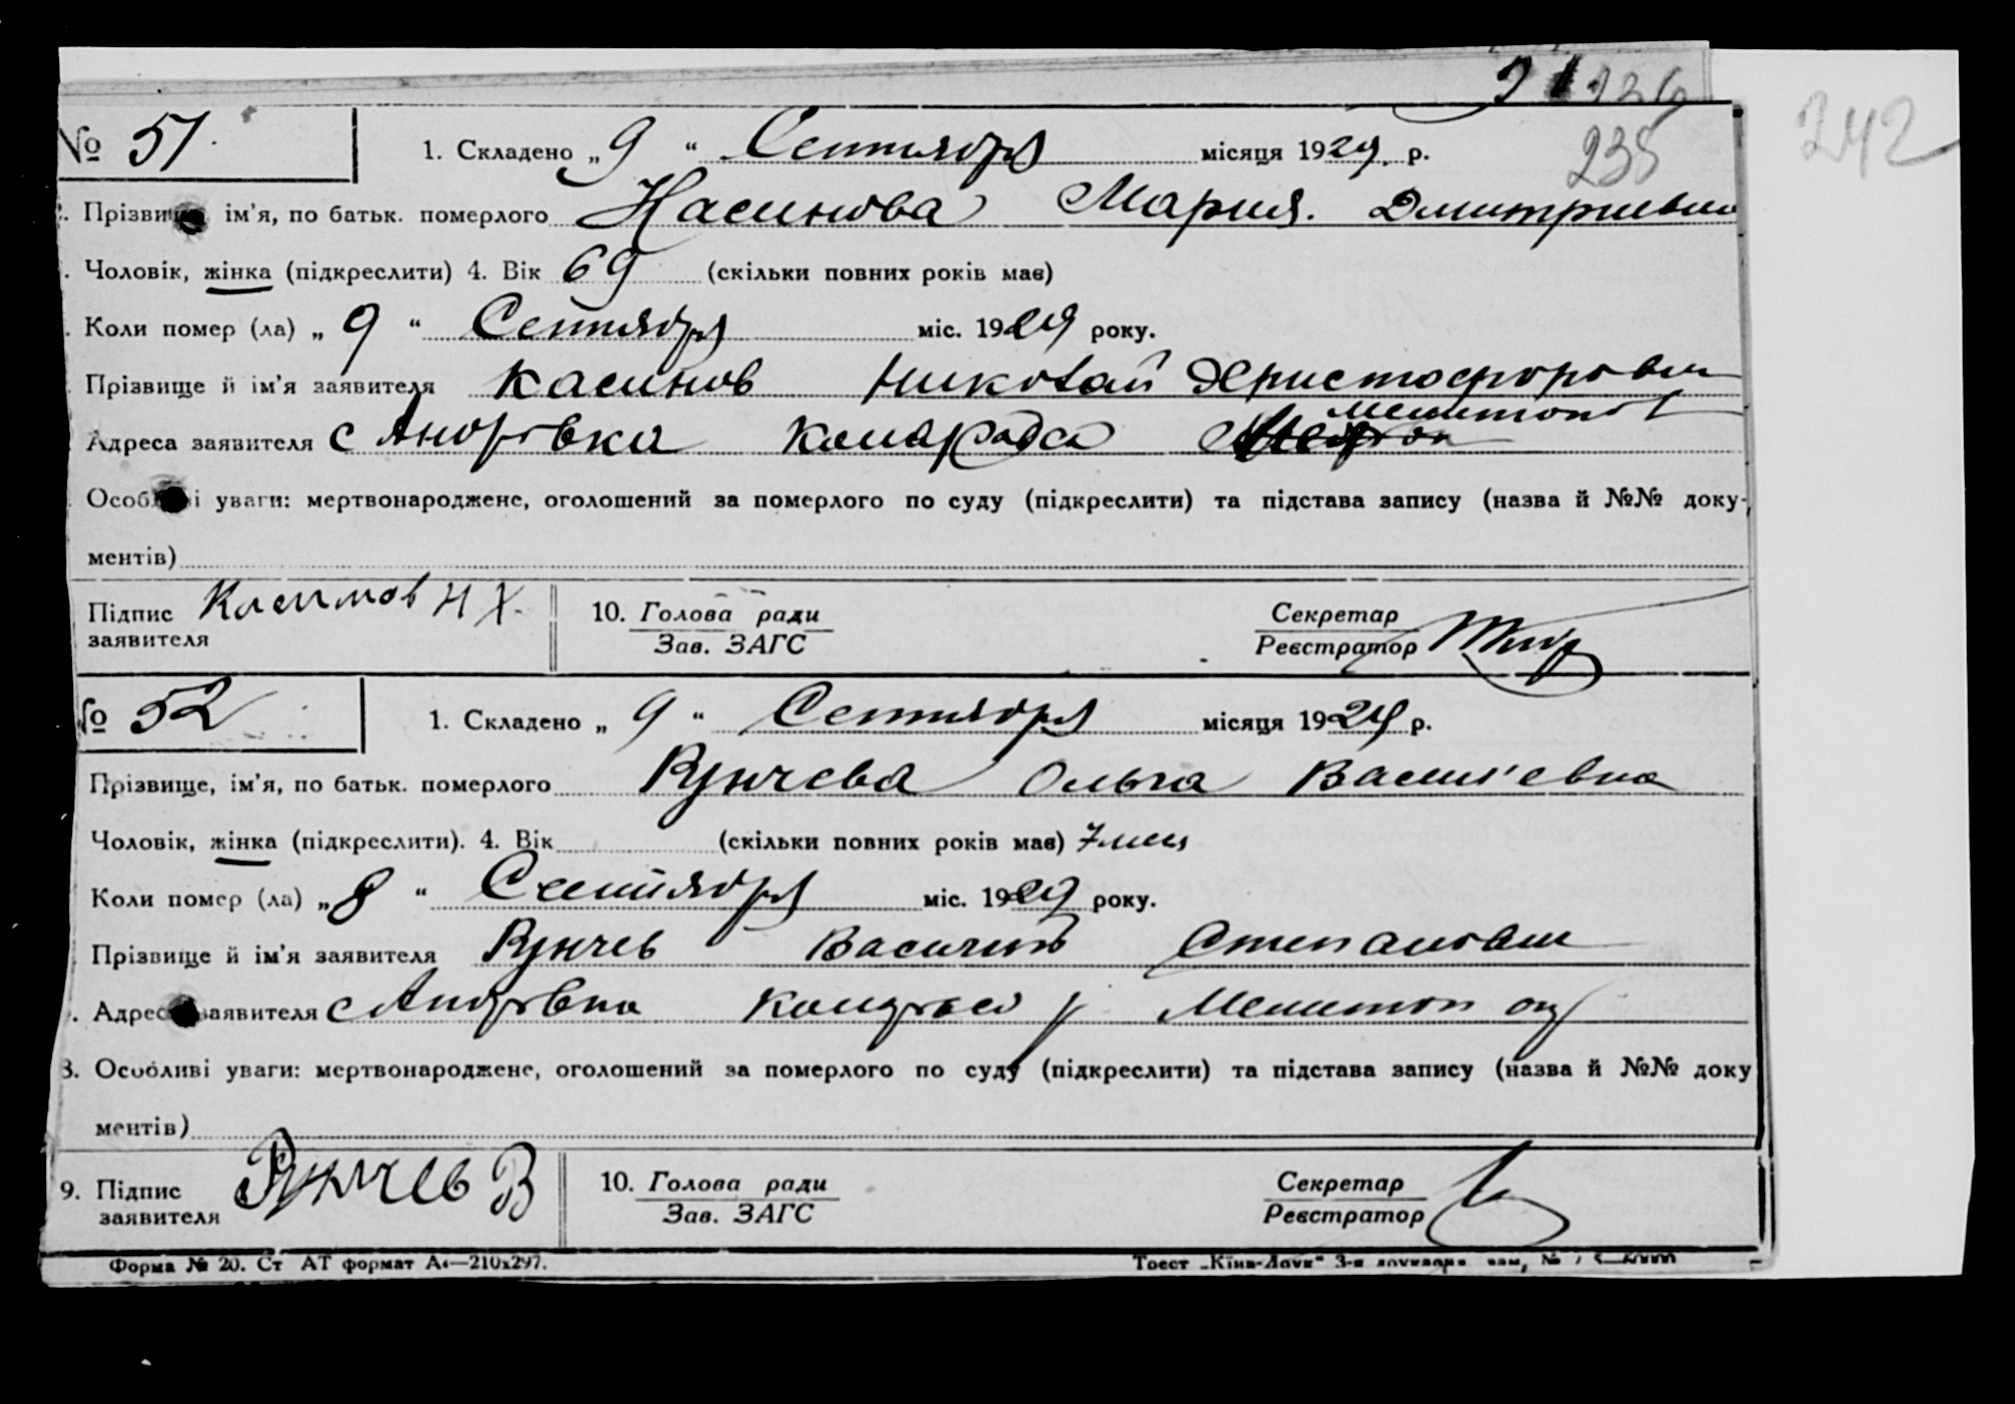 235
242
№ 51. 1. Складено „9“ Сентября місяця 1929. р.
Прізвище, ім'я, по батьк. померлого Касинова Мария. Дмитриевна
Чоловік, жінка (підкреслити) 4. Вік 69 (скільки повних років має)
Коли помер (ла) „9“ Сентября міс. 1929 року.
Прізвище й ім'я заявителя Касинов Николай Христофорович
Мелитопол
Адреса заявителя с Андровка
Особливі уваги: мертвонароджене, оголошений за померлого по суду (підкреслити) та підстава запису (назва й №№ доку-
ментів)
Підпис заявителя Касинов Н Х. 10. Голова ради Секретар
Зав. ЗАГС Реєстратор
№ 52 1. Складено „9“ Сентября місяця 1929 р.
Прізвище, ім'я, по батьк. померлого Рунчева Ольга Васильевна
Чоловік, жінка (підкреслити). 4. Вік (скільки повних років має) 7 мес
Коли помер (ла) „8“ Сентября міс. 1929 року.
Прізвище й ім'я заявителя Рунчев Василий Степанович
Адреса заявителя с Андровка Мелитоп окр
8. Особливі уваги: мертвонароджене, оголошений за померлого по суду (підкреслити) та підстава запису (назва й №№ доку
ментів)
9. Підпис заявителя Рунчев В 10. Голова ради Секретар
Зав. ЗАГС Реєстратор
Форма № 20. Ст АТ формат А4—210х297. Трест „Київ-Друк“ 3-я друкарня